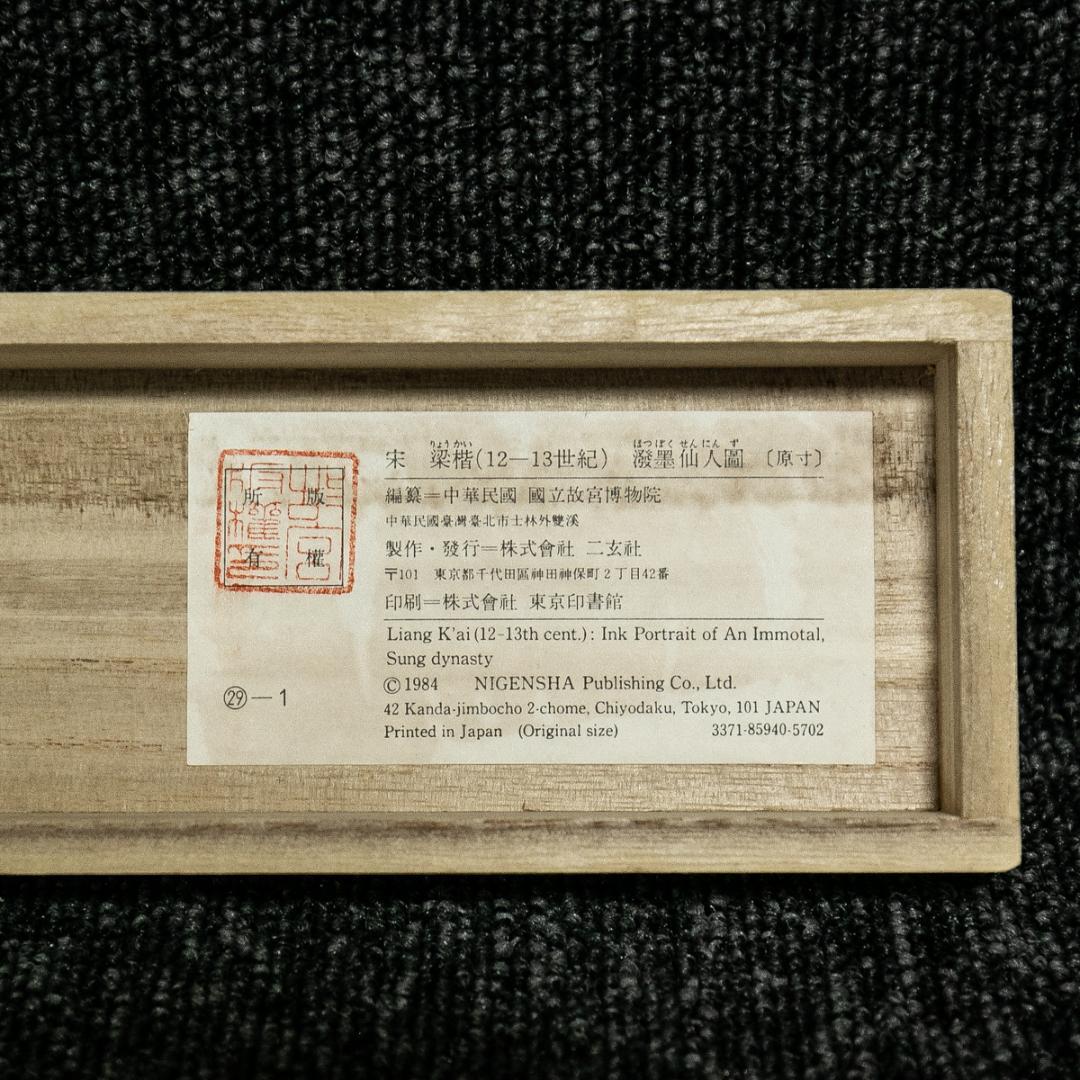 りょうかい　はつぼく せんにん ず
宋　梁楷(12—13世紀)　潑墨仙人圖　〔原寸〕
編纂＝中華民國 國立故宮博物院
中華民國臺灣臺北市士林外雙溪
製作・發行＝株式會社 二玄社
〒101　東京都千代田區神田神保町2丁目42番
印刷＝株式會社 東京印書館
Liang K'ai (12-13th cent.) : Ink Portrait of An Immotal,
Sung dynasty
©1984　NIGENSHA Publishing Co., Ltd.
42 Kanda-jimbocho 2-chome, Chiyodaku, Tokyo, 101 JAPAN
Printed in Japan　(Original size)　3371-85940-5702
版權
所有
㉙—1